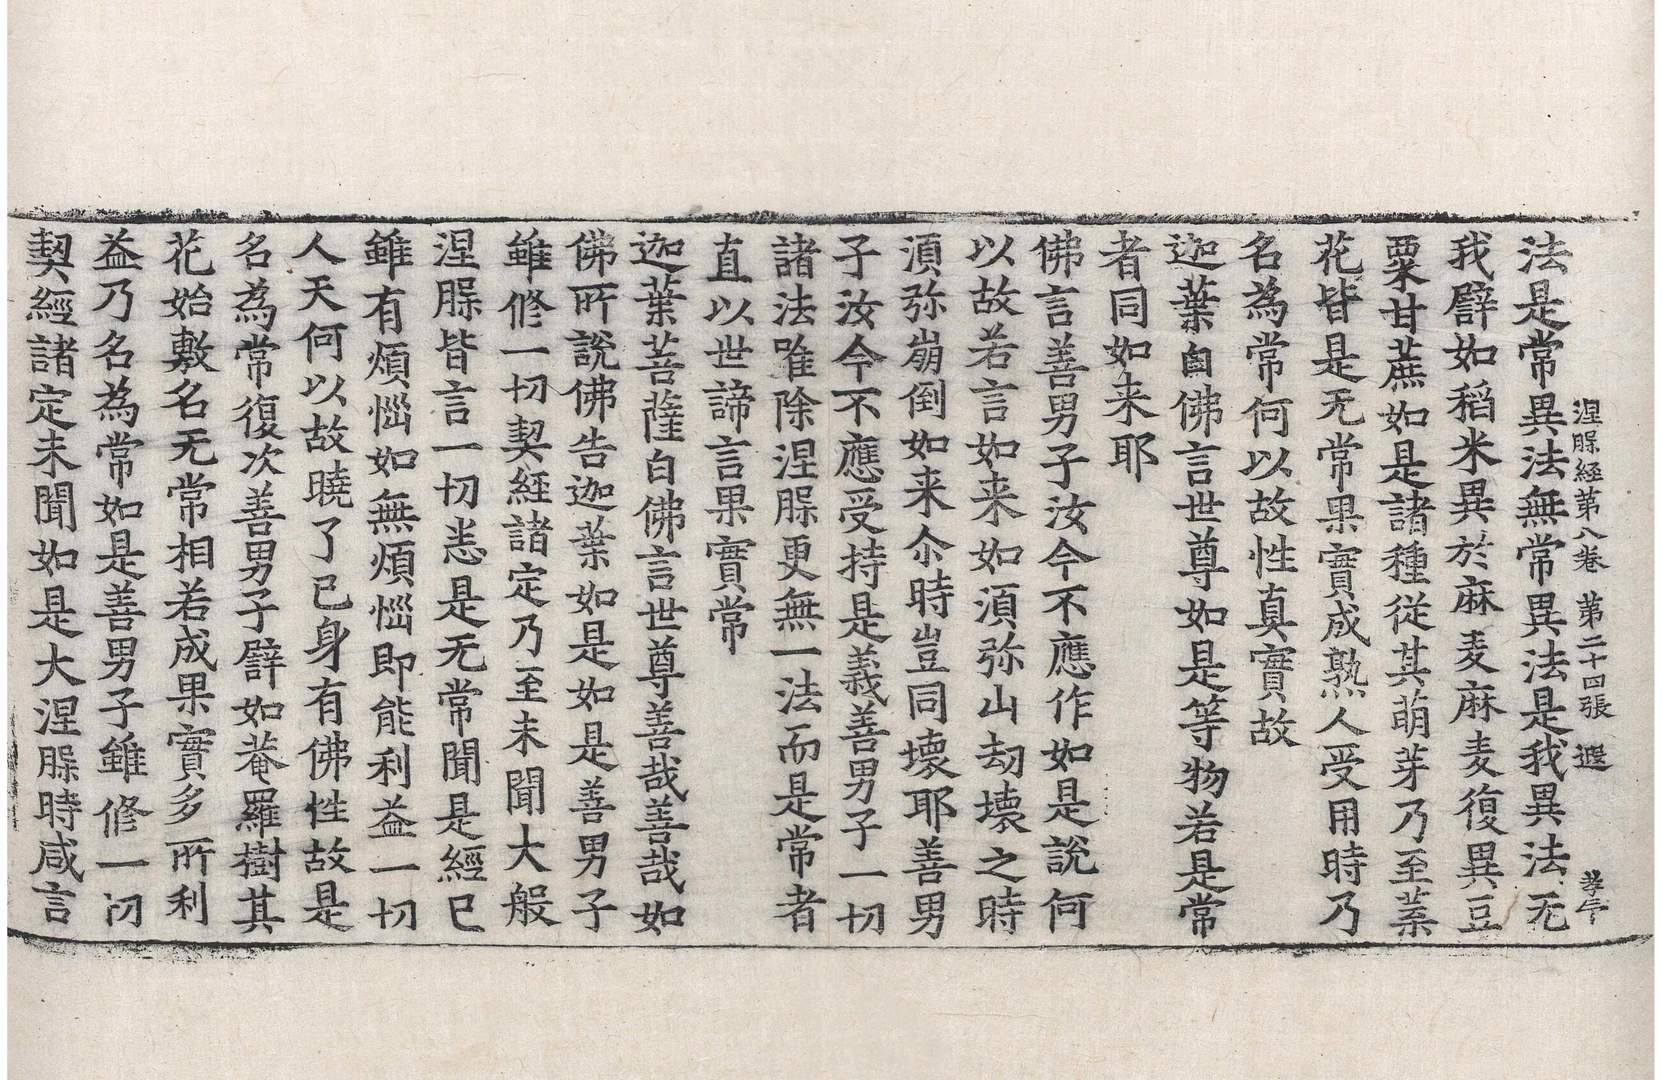 涅槃経第八卷 第二十四張 遐 孝年
法是常異法無常異法是我異法无
我譬如稻米異於麻麦麻麦復異豆
粟甘蔗如是諸種従其萌芽乃至葉
花皆是无常果實成熟人受用時乃
名為常何以故性真實故
迦葉白佛言世尊如是等物若是常
者同如来耶
佛言善男子汝今不應作如是說何
以故若言如来如湏弥山劫壊之時
湏弥崩倒如来尒時豈同壊耶善男
子汝今不應受持是義善男子一切
諸法唯除涅槃更無一法而是常者
直以世諦言果實常
迦葉菩薩白佛言世尊善哉善哉如
佛所說佛告迦葉如是如是善男子
雖修一切契経諸定乃至未聞大般
涅槃皆言一切悉是无常聞是經已
雖有煩惱如無煩惱即能利益一切
人天何以故曉了已身有佛性故是
名為常復次善男子譬如菴羅樹其
花始敷名无常相若成果實多所利
益乃名為常如是善男子雖修一切
契經諸定未聞如是大涅槃時咸言